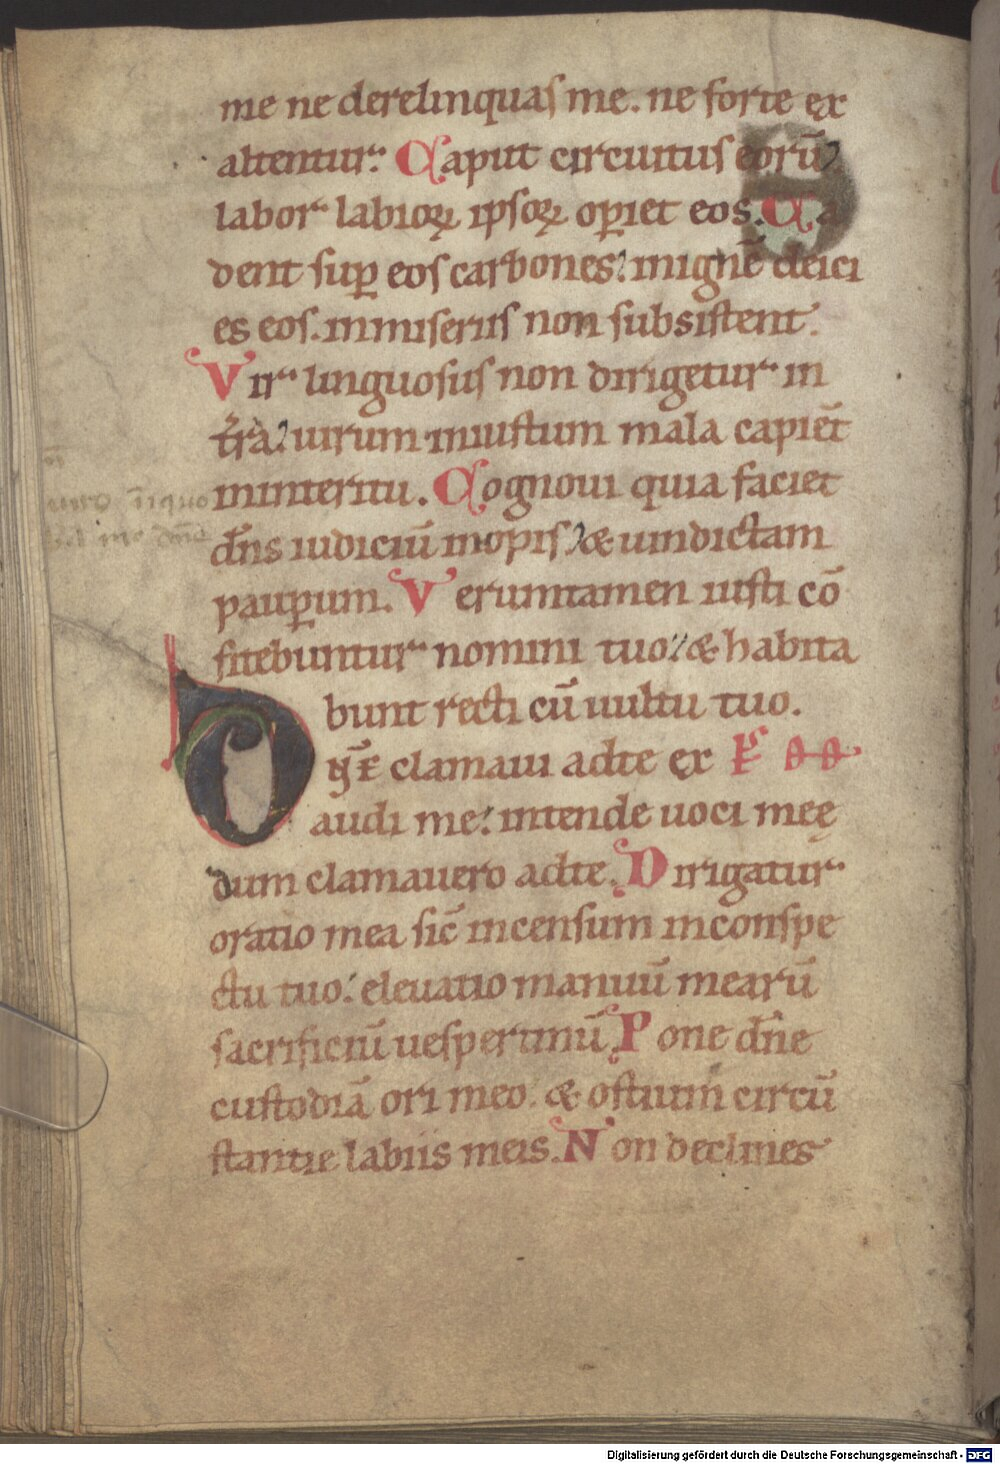 me ne derelinquas me. ne forte ęx
altentur. Caput circuitus eorū
labor labioꝝ ipsoꝝ oꝑiet eos. Ca
dent suꝑ eos carbones. inignē deici
es eos. inmiseriis non subsistent.
Vir linguosus non dirigetur in
tr̄a. uirum iniustum mala capiēt
ininteritu. Cognoui quia faciet
dn̄s iudiciū inopis & uindictam
pauꝑum. Veruntamen iusti cō
fitebuntur nomini tuo. & habita
bunt recti cū uultu tuo.
Dn̄e clamaui adte ęx
audi me. intende uoci meę
dum clamauero adte. Dirigatur
oratio mea sic̄ incensum inconspe
ctu tuo. eleuatio manuū mearū
sacrificiū uespertinū. Pone dn̄e
custodiā ori meo. & ostium circū
stantie labiis meis. Non declines
Digitalisierung gefördert durch die Deutsche Forschungsgemeinschaft - DFG